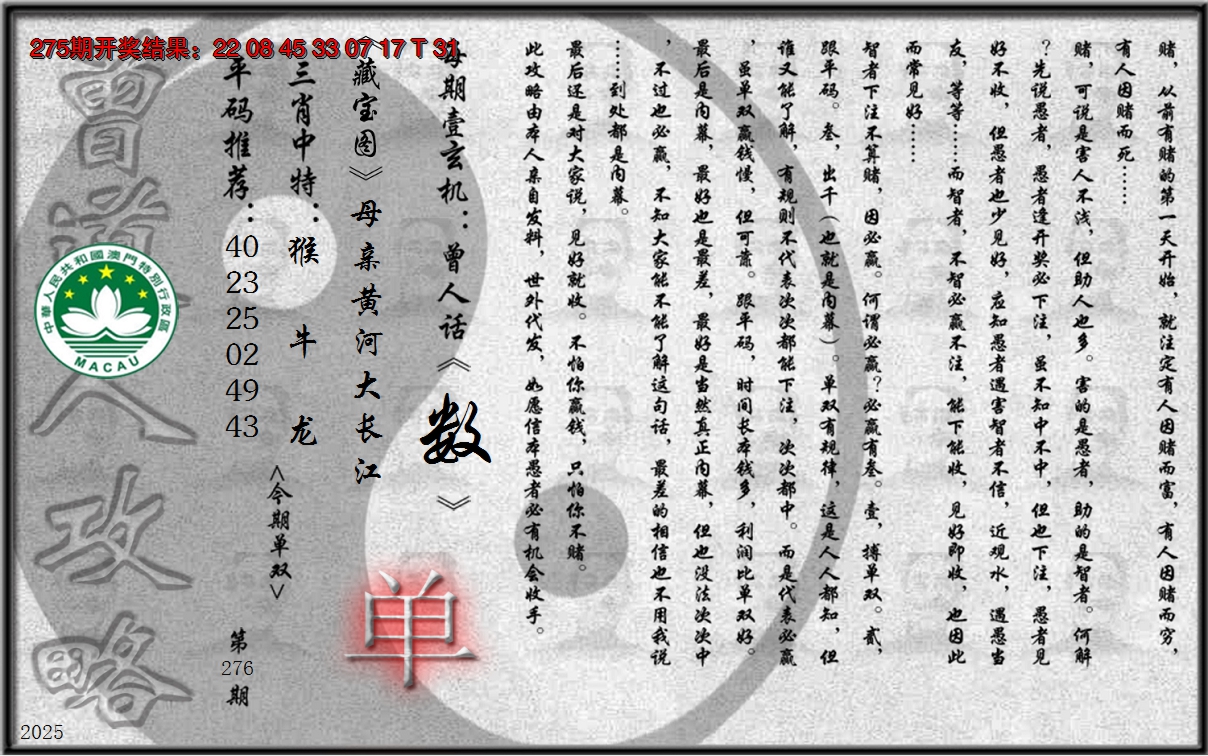 275期开奖结果：22 08 45 33 07 17 T 31
赌，从前有赌的第一天开始，就注定有人因赌而富，有人因赌而穷，
有人因赌而死……
赌，可说是害人不浅，但助人也多。害的是愚者，助的是智者。何解
？先说愚者，愚者逢开奖必下注，虽不知中不中，但也下注，愚者见
好不收，但愚者也少见好，应知愚者遇害智者不信，近观水，遇愚当
友，等等……而智者，不智必赢不注，能下能收，见好即收，也因此
而常见好……
智者下注不算赌，因必赢。何谓必赢？必赢有叁。壹，搏单双。贰，
跟平码。叁，出千（也就是内幕）。单双有规律，这是人人都知，但
谁又能了解，有规则不代表次次都能下注，次次都中。而是代表必赢
，虽单双赢钱慢，但可靠。跟平码，时间长本钱多，利润比单双好。
最后是内幕，最好也是最差，最好是当然真正内幕，但也没法次次中
，不过也必赢，不知大家能不能了解这句话，最差的相信也不用我说
……到处都是内幕。
最后还是对大家说，见好就收。不怕你赢钱，只怕你不赌。
此攻略由本人亲自发料，世外代发，如愿信本愚者必有机会收手。
每期壹玄机：曾人话《数》
《藏宝图》母亲黄河大长江
单
三肖中特：猴 牛 龙
<今期单双>
平码推荐：40 23 25 02 49 43
第276期
曾道人攻略
中華人民共和國澳門特別行政區
MACAU
2025